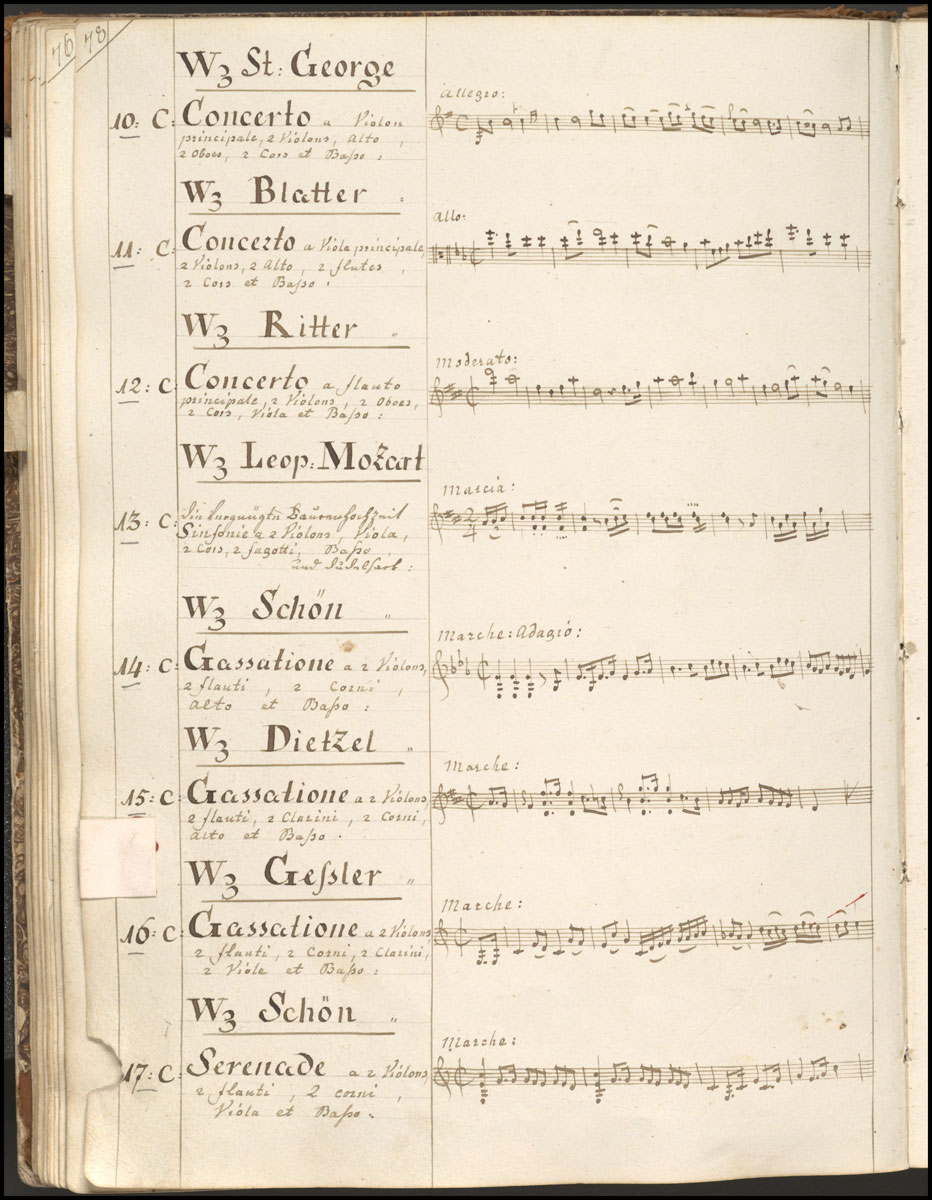 76 78
W3 St: George
Allegro:
10: C: Concerto a Violon
principale, 2 Violons, Alto,
2 Oboes, 2 Cors et Baßo:
W3 Blatter
Allo:
11: C: Concerto a Viola principale,
2 Violons, 2 Alto, 2 flutes,
2 Cors et Baßo:
W3 Ritter
Moderato:
12: C: Concerto a flauto
principale, 2 Violons, 2 Oboes,
2 Cors, Viola et Baßo:
W3 Leop: Mozart
Marcia:
13: C: Bauernhochzeit
Sinfonie a 2 Violons, Viola,
2 Cors, 2 fagotti, Baßo
und dudelsack:
W3 Schön
Marche: Adagio:
14: C: Gassatione a 2 Violons,
2 flauti, 2 Corni,
alto et Baßo:
W3 Dietzel
Marche:
15: C: Gassatione a 2 Violons,
2 flauti, 2 Clarini, 2 Corni,
alto et Baßo.
W3 Geßler
Marche:
16: C: Gassatione a 2 Violons,
2 flauti, 2 Corni, 2 Clarini,
2 Viole et Baßo:
W3 Schön
Marche:
17: C: Serenade a 2 Violons,
2 flauti, 2 corni,
Viola et Baßo.